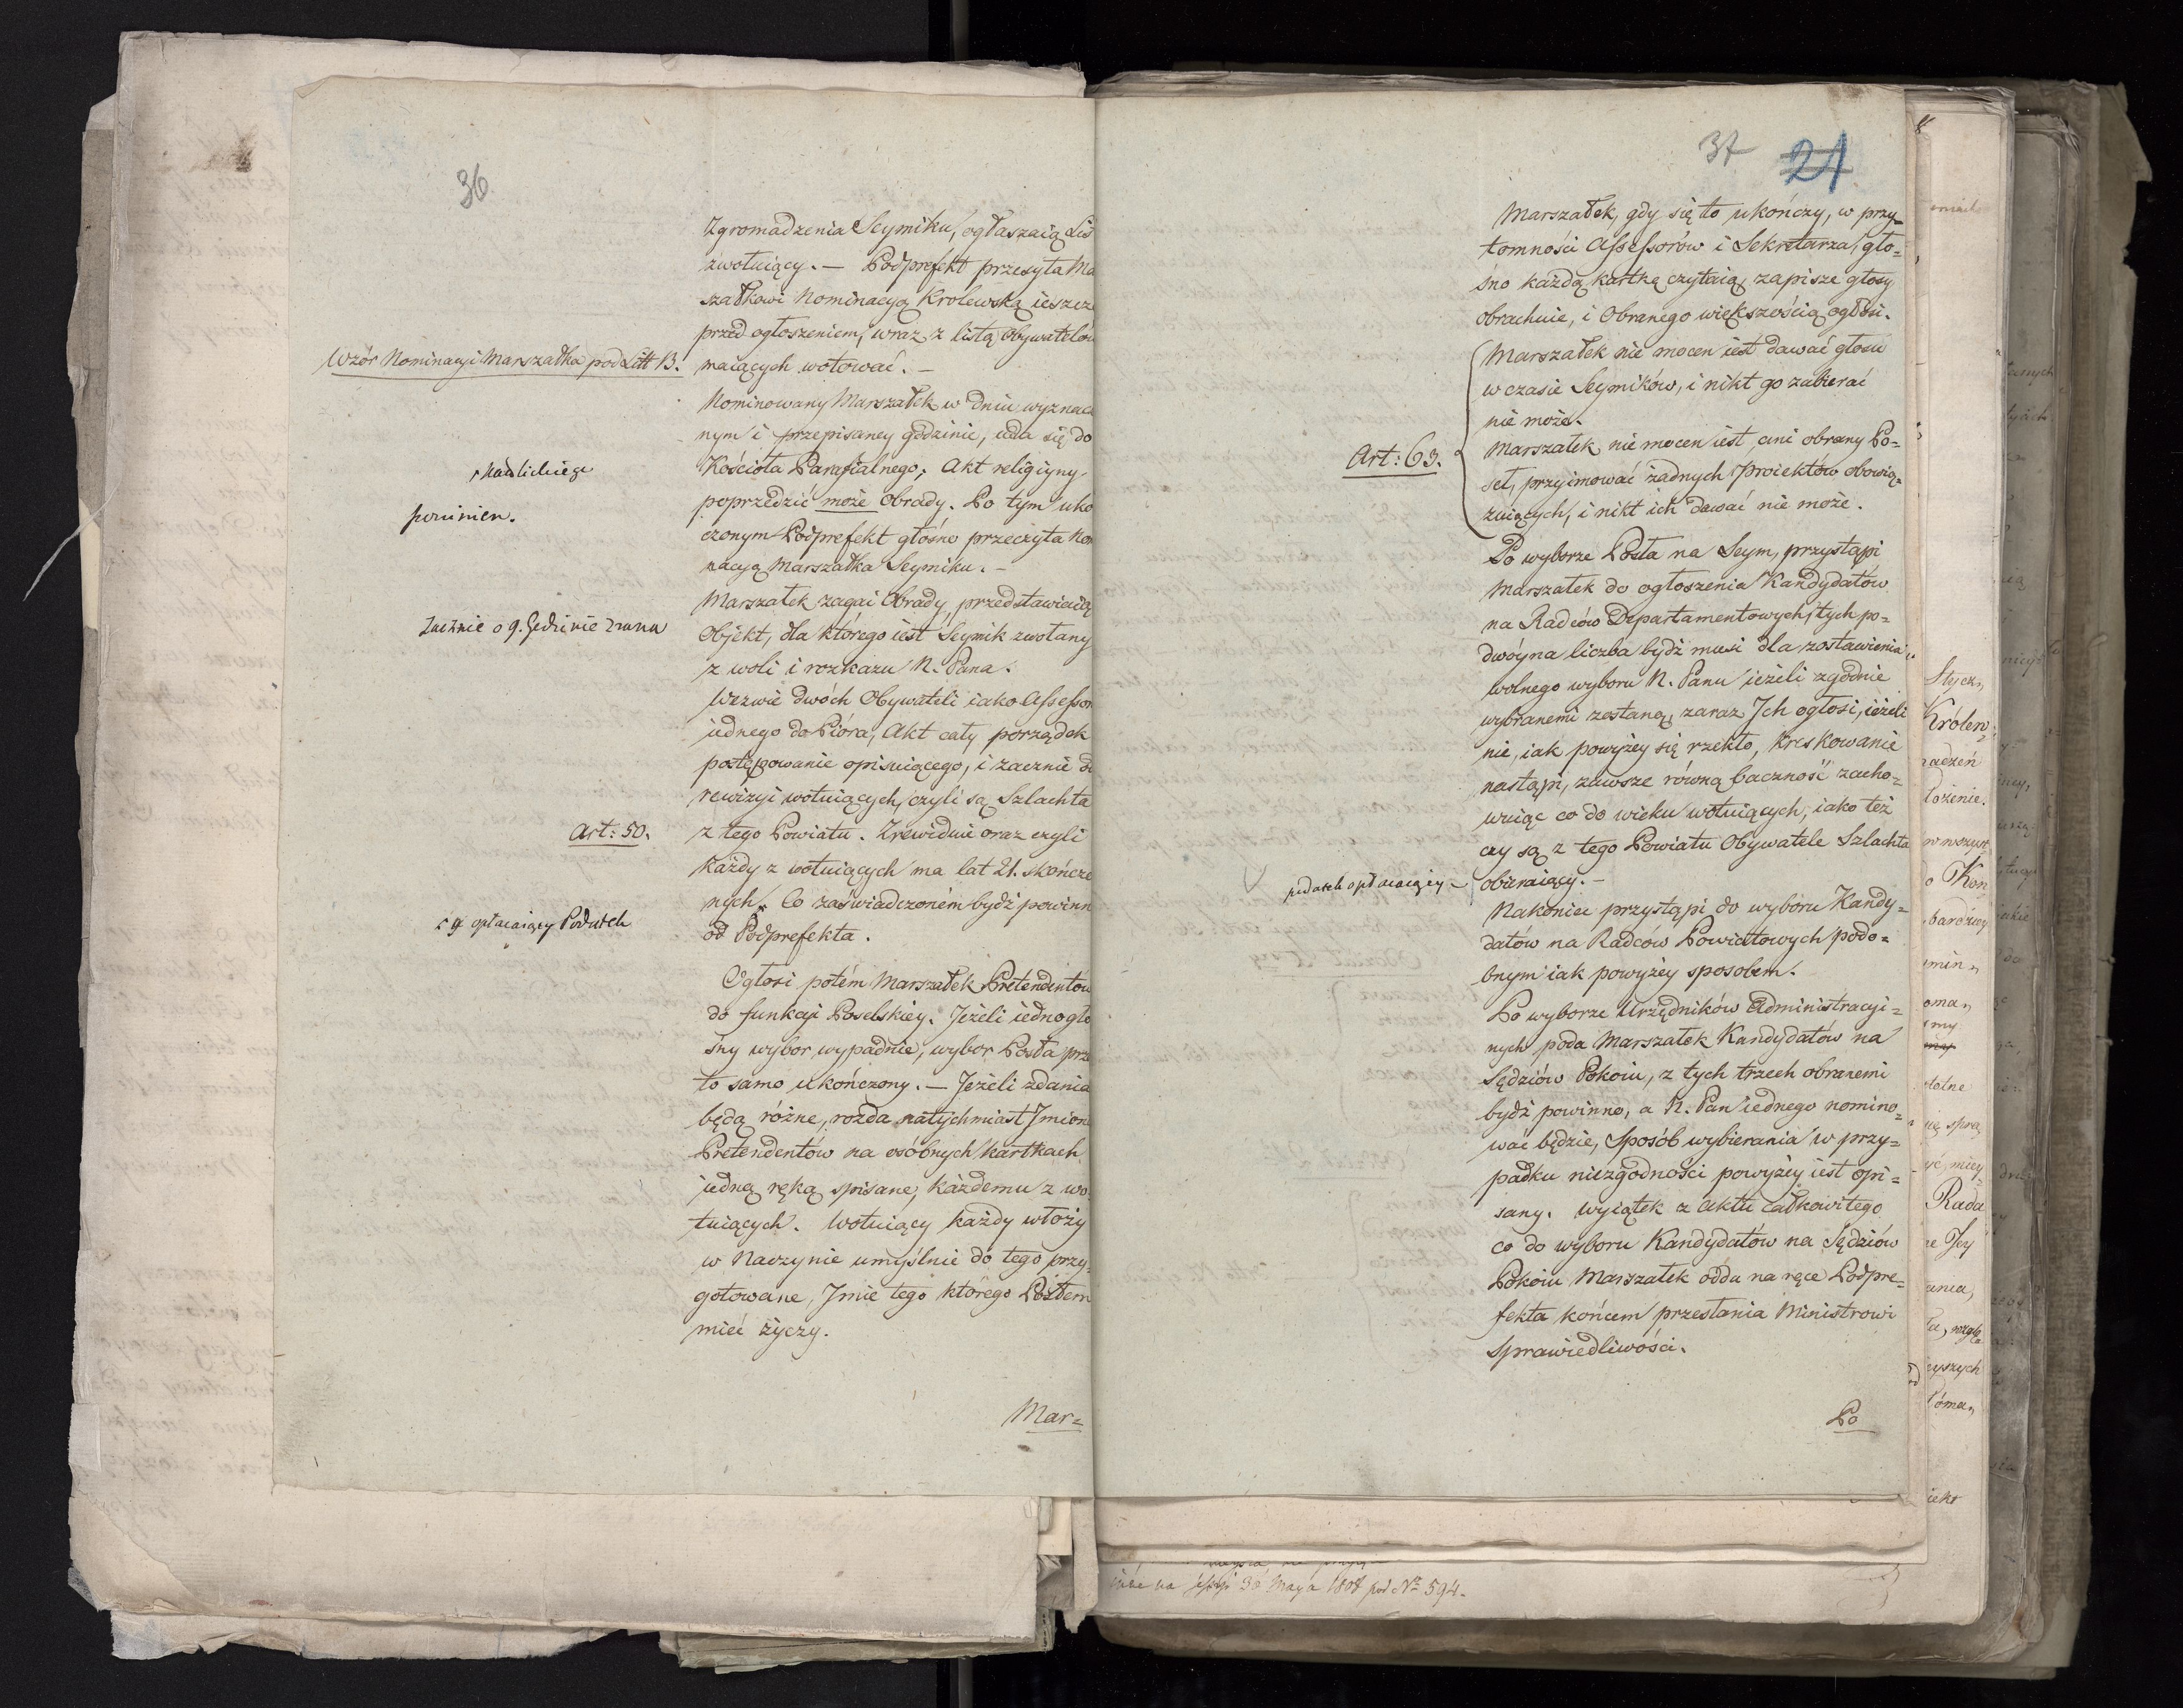 36
Zgromadzenia Seymiku, ogłaszaią Lis
zwołuiący. — Podprefekt przesyła Ma
szałkowi Nominacyą Krolewską ieszcze
przed ogłoszeniem, wraz z listą Obywatelów
Wzór Nominacyi Marszałka pod Litt B.
maiących wotować. —
Nominowany Marszałek w dniu wyznac
nym i przepisaney godzinie, uda się do
Kościoła Parafialnego; Akt religiyny
poprzedzić może Obrady. Po tym uko
powinien.
czonym Podprefekt głośno przeczyta Nom
nacyą Marszałka Seymiku. —
Marszałek zagai Obrady, przedstawiaiąc
zacznie o 9. Godzinie zrana
Objekt, dla którego iest Seymik zwołany
z woli i rozkazu N. Pana.
Wezwie dwóch Obywateli iako Assessor
iednego do Pióra, Akt cały porządek
postępowanie opisuiącego, i zacznie od
rewizyi wotuiących, czyli są Szlachta
Art: 50.
z tego Powiatu. Zrewiduie oraz czyli
każdy z wotuiących ma lat 21. skończo
nych. Co zaświadczoném bydź powinn
opłacaiący Podatek
od Podprefekta.
Ogłosi potém Marszałek Pretendentów
do funkcyi Poselskiey. Jeżeli iednogło
śny wybor wypadnie, wybor Posła prze
to samo ukończony. — Jeżeli zdania
będą różne, rozda natychmiast Jmiona
Pretendentów na osóbnych kartkach
iedną ręką spisane, każdemu z wo
tuiących. Wotuiący każdy włoży
w Naczynie umyślnie do tego przy
gotowane, Jmie tego którego Posłem
mieć życzy.
Mar=
37 21
Marszałek, gdy się to ukończy, w przy=
tomności Assessorów i Sekretarza, gło=
śno każdą kartkę czytaiąc, zapisze głosy
obrachuie, i Obranego większością ogłosi.
Marszałek nie mocen iest dawać głosu
w czasie Seymików, i nikt go zabierać
nie może.
Art: 63.
Marszałek nie mocen iest, ani obrany Po=
seł, przyimować żadnych proiektów obowią=
zuiących, i nikt ich dawać nie może.
Po wyborze Posła na Seym, przystąpi
Marszałek do ogłoszenia Kandydatów
na Radców Departamentowych, tych po=
dwóyna liczba bydź musi dla zostawienia
wolnego wyboru N. Panu ieżeli zgodnie
wybranemi zostaną, zaraz Jch ogłosi, ieżeli
nie, iak powyżey się rzekło, Kreskowanie
nastąpi, zawsze równą baczność zacho=
wuiąc co do wieku wotuiących, iako też
czy są z tego Powiatu Obywatele Szlachta
podatek opłacaiący
obieraiący. —
Nakoniec przystąpi do wyboru Kandy=
datów na Radców Powiatowych podo=
bnym iak powyżey sposobem.
Po wyborze Urzędników Administracyi=
nych poda Marszałek Kandydatów na
Sędziów Pokoiu, z tych trzech obranemi
bydź powinno, a N. Pan iednego nomino=
wać będzie, Sposób wybierania w przy=
padku niezgodności powyżey iest opi=
sany. Wyiątek z aktu całkowitego
co do wyboru Kandydatów na Sędziów
Pokoiu Marszałek odda na ręce Podpre=
fekta końcem przesłania Ministrowi
Sprawiedliwości.
Po
na sessyi 30 Maya 1808 pod No 594.